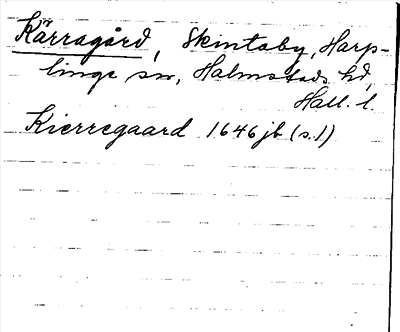 Kärragård, Skintaby, Harp-
linge sn, Halmstads hd,
Hall. l.
Kierregaard 1646 jb (s. 1)